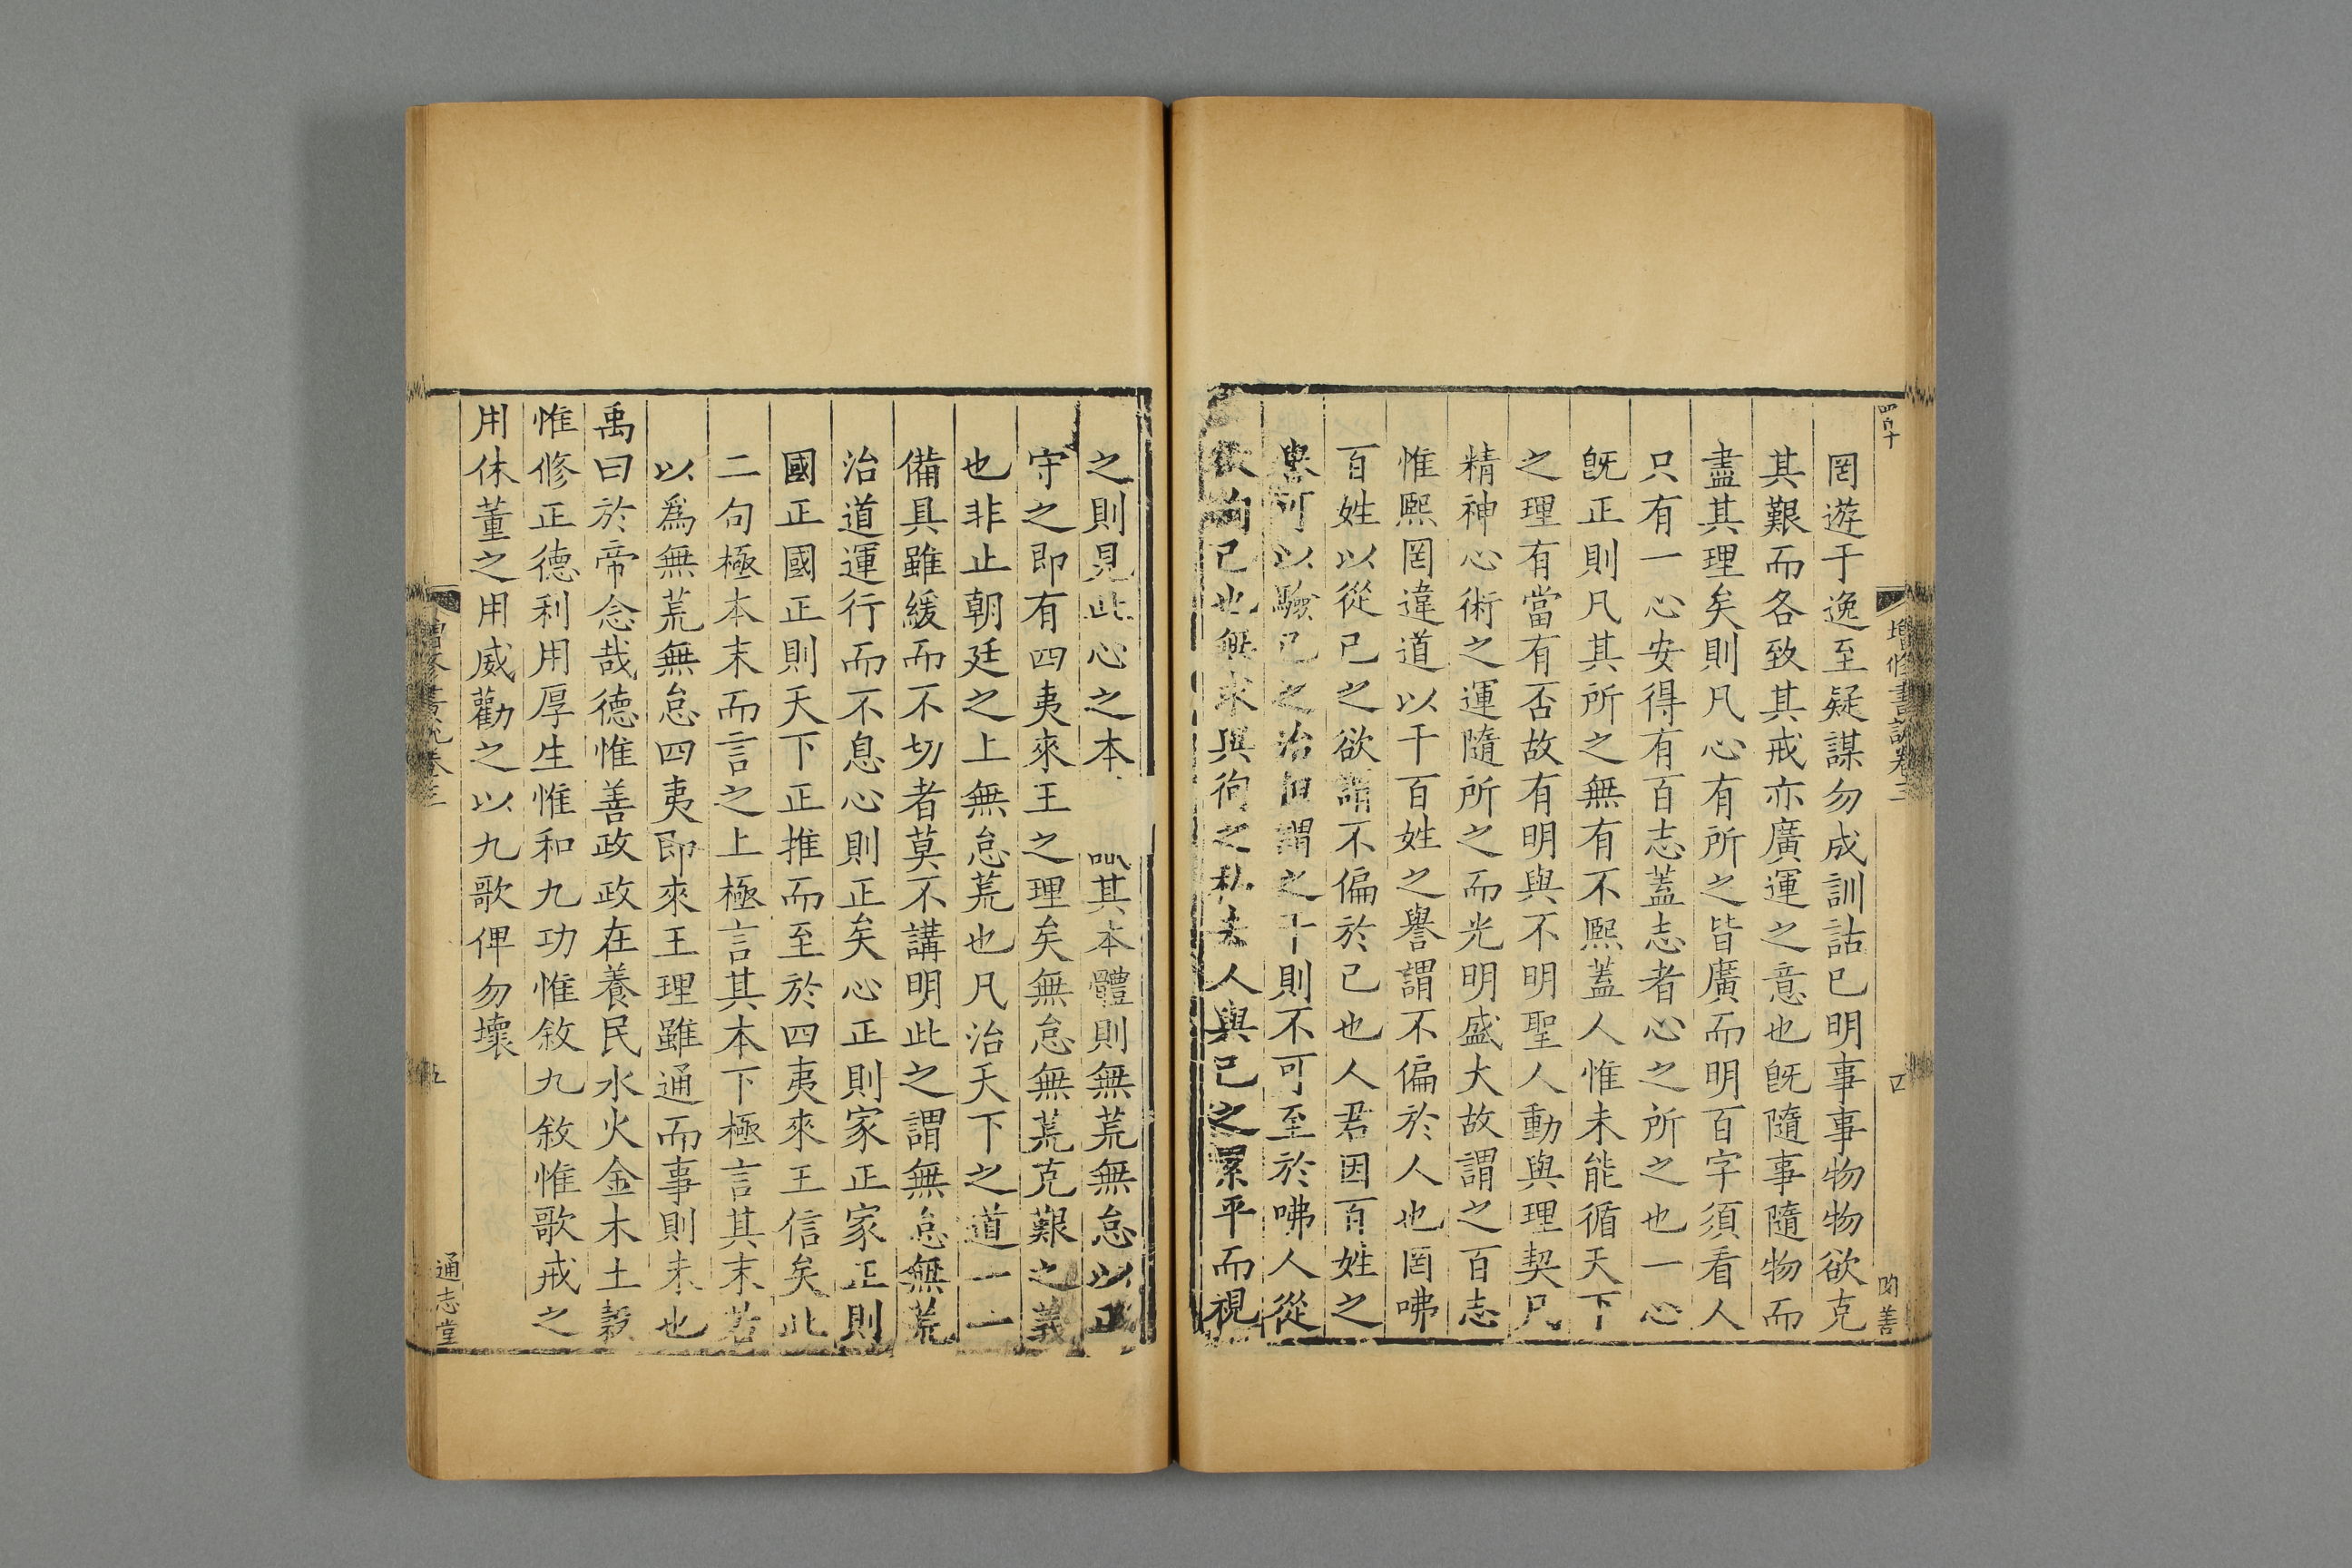 四百十
增修書說卷三
四
罔遊于逸至疑謀勿成訓詁已明事事物物欲克
其艱而各致其戒亦廣運之意也旣隨事隨物而
盡其理矣則凡心有所之皆廣而明百字須看人
只有一心安得有百志蓋志者心之所之也一心
旣正則凡其所之無有不熙蓋人惟未能循天下
之理有當有否故有明與不明聖人動與理契凡
精神心術之運隨所之而光明盛大故謂之百志
惟熙罔違道以干百姓之譽謂不偏於人也罔咈
百姓以從已之欲謂不偏於已也人君因百姓之
譽可以驗已之治但謂之干則不可至於咈人從
欲徇已也無求與徇之私去人與已之累平而視
之則見此心之本其本體則無荒無怠以正
守之即有四夷來王之理矣無怠無荒克艱之義
也非止朝廷之上無怠荒也凡治天下之道一一
備具雖緩而不切者莫不講明此之謂無怠無荒
治道運行而不息心則正矣心正則家正家正則
國正國正則天下正推而至於四夷來王信矣此
二句極本末而言之上極言其本下極言其末若
以爲無荒無怠四夷即來王理雖通而事則未也
禹曰於帝念哉德惟善政政在養民水火金木土穀
惟修正德利用厚生惟和九功惟敘九敘惟歌戒之
用休董之用威勸之以九歌俾勿壞
增修書說卷三
五
通志堂